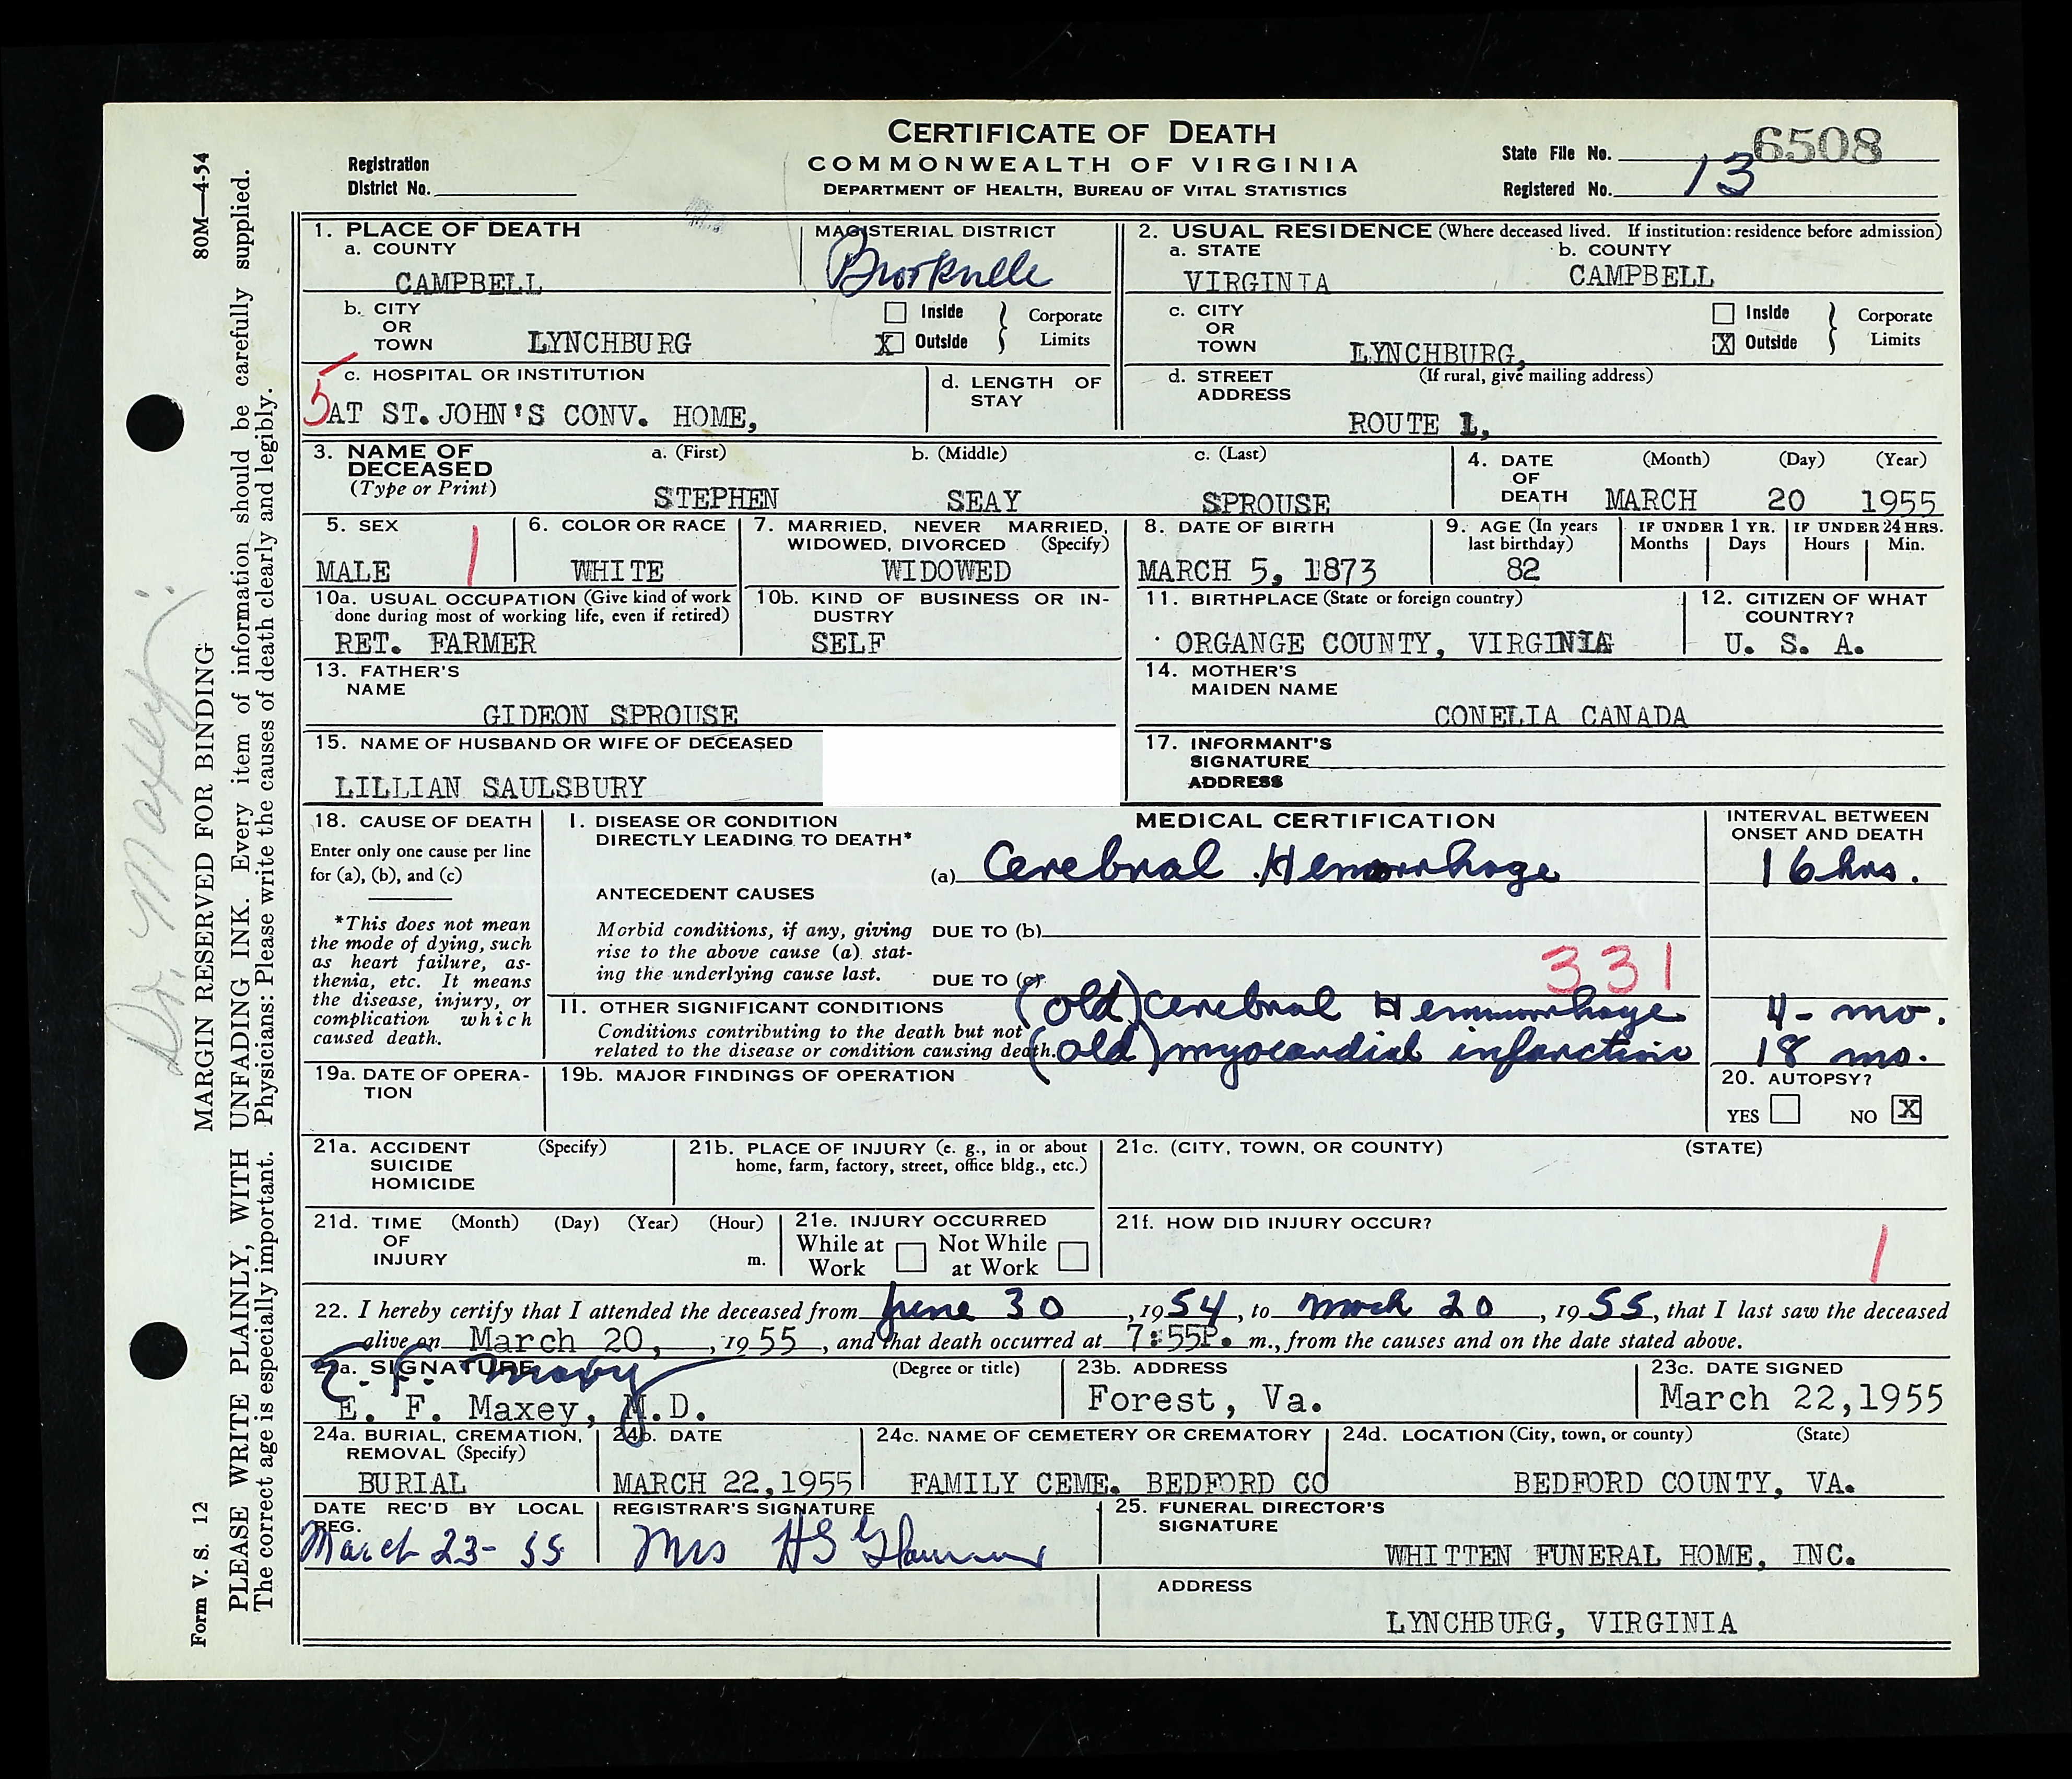 CERTIFICATE OF DEATH
COMMONWEALTH OF VIRGINIA
DEPARTMENT OF HEALTH, BUREAU OF VITAL STATISTICS
Registration
District No.
State File No. 6508
Registered No. 13
1. PLACE OF DEATH
a. COUNTY
CAMPBELL
MAGISTERIAL DISTRICT
b. CITY
OR
TOWN
LYNCHBURG
Inside
X Outside
Corporate
Limits
5
c. HOSPITAL OR INSTITUTION
AT ST. JOHN'S CONV. HOME,
d. LENGTH OF
STAY
2. USUAL RESIDENCE (Where deceased lived. If institution: residence before admission)
a. STATE
VIRGINIA
b. COUNTY
CAMPBELL
c. CITY
OR
TOWN
LYNCHBURG,
Inside
X Outside
Corporate
Limits
d. STREET
ADDRESS
(If rural, give mailing address)
ROUTE 1,
3. NAME OF
DECEASED
(Type or Print)
a. (First)
STEPHEN
b. (Middle)
SEAY
c. (Last)
SPROUSE
4. DATE
OF
DEATH
(Month) (Day) (Year)
MARCH 20 1955
5. SEX
MALE 1
6. COLOR OR RACE
WHITE
7. MARRIED, NEVER MARRIED,
WIDOWED, DIVORCED (Specify)
WIDOWED
8. DATE OF BIRTH
MARCH 5, 1873
9. AGE (In years
last birthday)
82
IF UNDER 1 YR.
Months Days
IF UNDER 24 HRS.
Hours Min.
10a. USUAL OCCUPATION (Give kind of work
done during most of working life, even if retired)
RET. FARMER
10b. KIND OF BUSINESS OR IN-
DUSTRY
SELF
11. BIRTHPLACE (State or foreign country)
ORGANGE COUNTY, VIRGINIA
12. CITIZEN OF WHAT
COUNTRY?
U. S. A.
13. FATHER'S
NAME
GIDEON SPROUSE
14. MOTHER'S
MAIDEN NAME
CONELIA CANADA
15. NAME OF HUSBAND OR WIFE OF DECEASED
LILLIAN SAULSBURY
17. INFORMANT'S
SIGNATURE
ADDRESS
18. CAUSE OF DEATH
Enter only one cause per line
for (a), (b), and (c)
*This does not mean
the mode of dying, such
as heart failure, as-
thenia, etc. It means
the disease, injury, or
complication which
caused death.
MEDICAL CERTIFICATION
I. DISEASE OR CONDITION
DIRECTLY LEADING TO DEATH*
(a) Cerebral Hemorrhage
ANTECEDENT CAUSES
Morbid conditions, if any, giving
rise to the above cause (a) stat-
ing the underlying cause last.
DUE TO (b)
DUE TO (c)
331
II. OTHER SIGNIFICANT CONDITIONS
Conditions contributing to the death but not
related to the disease or condition causing death.
(old) Cerebral Hemmorrhage
(old) myocardial infarction
INTERVAL BETWEEN
ONSET AND DEATH
16 hrs.
4 - mo.
18 mo.
19a. DATE OF OPERA-
TION
19b. MAJOR FINDINGS OF OPERATION
20. AUTOPSY?
YES NO X
21a. ACCIDENT (Specify)
SUICIDE
HOMICIDE
21b. PLACE OF INJURY (e. g., in or about
home, farm, factory, street, office bldg., etc.)
21c. (CITY, TOWN, OR COUNTY) (STATE)
21d. TIME (Month) (Day) (Year) (Hour)
OF
INJURY m.
21e. INJURY OCCURRED
While at Not While
Work at Work
21f. HOW DID INJURY OCCUR?
1
22. I hereby certify that I attended the deceased from June 30, 1954, to March 20, 1955, that I last saw the deceased
alive on March 20, 1955, and that death occurred at 7:55P. m., from the causes and on the date stated above.
23a. SIGNATURE (Degree or title)
E. F. Maxey
E. F. Maxey, M.D.
23b. ADDRESS
Forest, Va.
23c. DATE SIGNED
March 22,1955
24a. BURIAL, CREMATION,
REMOVAL (Specify)
BURIAL
24b. DATE
MARCH 22,1955
24c. NAME OF CEMETERY OR CREMATORY
FAMILY CEME. BEDFORD CO
24d. LOCATION (City, town, or county) (State)
BEDFORD COUNTY, VA.
DATE REC'D BY LOCAL
REG.
March 23- 55
REGISTRAR'S SIGNATURE
Mrs HS
25. FUNERAL DIRECTOR'S
SIGNATURE
WHITTEN FUNERAL HOME, INC.
ADDRESS
LYNCHBURG, VIRGINIA
Form V. S. 12
80M—4-54
Dr. Maxey
MARGIN RESERVED FOR BINDING
PLEASE WRITE PLAINLY, WITH UNFADING INK. Every item of information should be carefully supplied.
The correct age is especially important. Physicians: Please write the causes of death clearly and legibly.